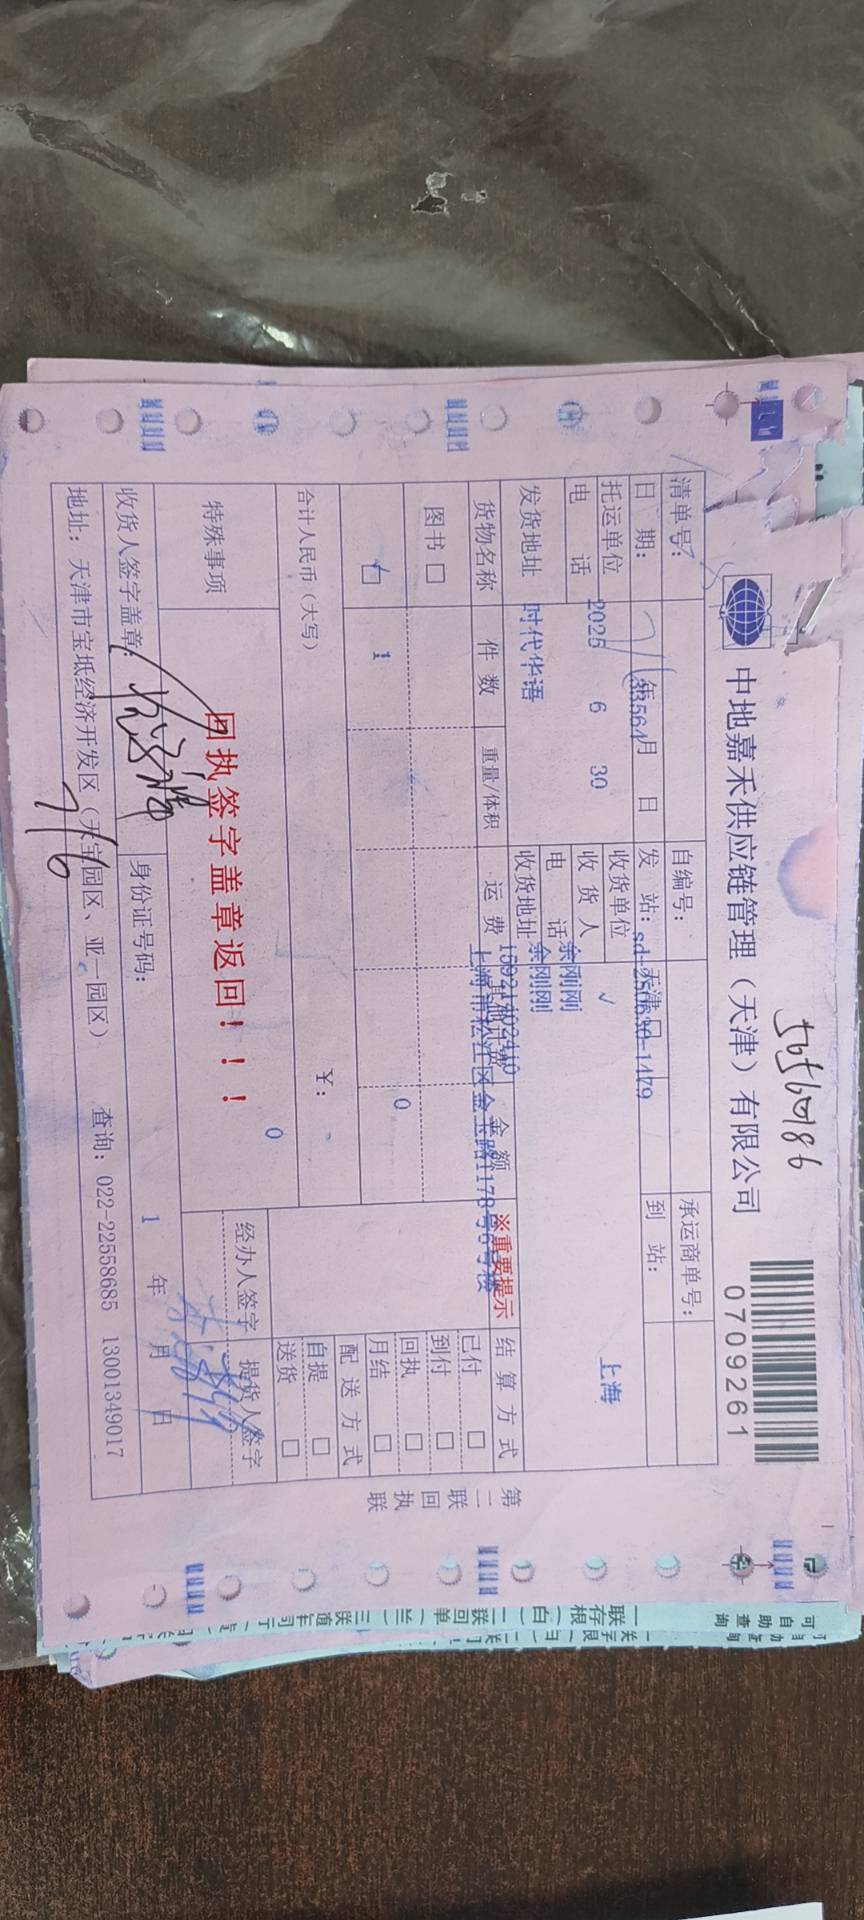 56560186
中地嘉禾供应链管理（天津）有限公司
0709261
清单号：
自编号：
承运商单号：
日 期： 年 月 日
发 站： 天津
sd-250630-1479
到 站：
托运单位
收货单位
上海
电 话
2025 6 30
收 货 人
✓
余刚刚
电 话
余刚刚
发货地址
时代华语
收货地址
上海市松江区金玉路1178号6号楼
※重要提示
货物名称
件 数
重量/体积
运 费
金 额
结 算 方 式
图书 □
已付 □
到付 □
□
1
0
回执 □
月结 □
合计人民币（大写）
￥：
配 送 方 式
自提 □
特殊事项
0
送货 □
回执签字盖章返回！！！
经办人签字
提货人签字
收货人签字盖章：
身份证号码：
1 年 月 日
7/6
地址：天津市宝坻经济开发区（天宝园区、亚一园区）
查询：022-22558685 13001349017
第二联 回执联
可自助查询